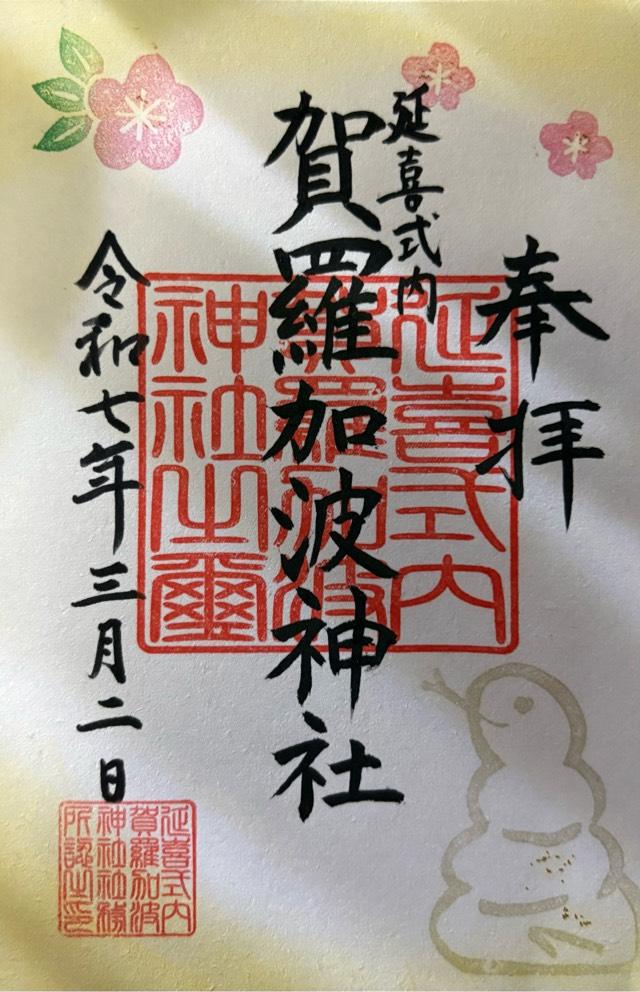 奉拝
延喜式内
賀羅加波神社
令和七年三月二日
延喜式内
賀羅加波
神社之璽
延喜式内
賀羅加波
神社社務
所認之印